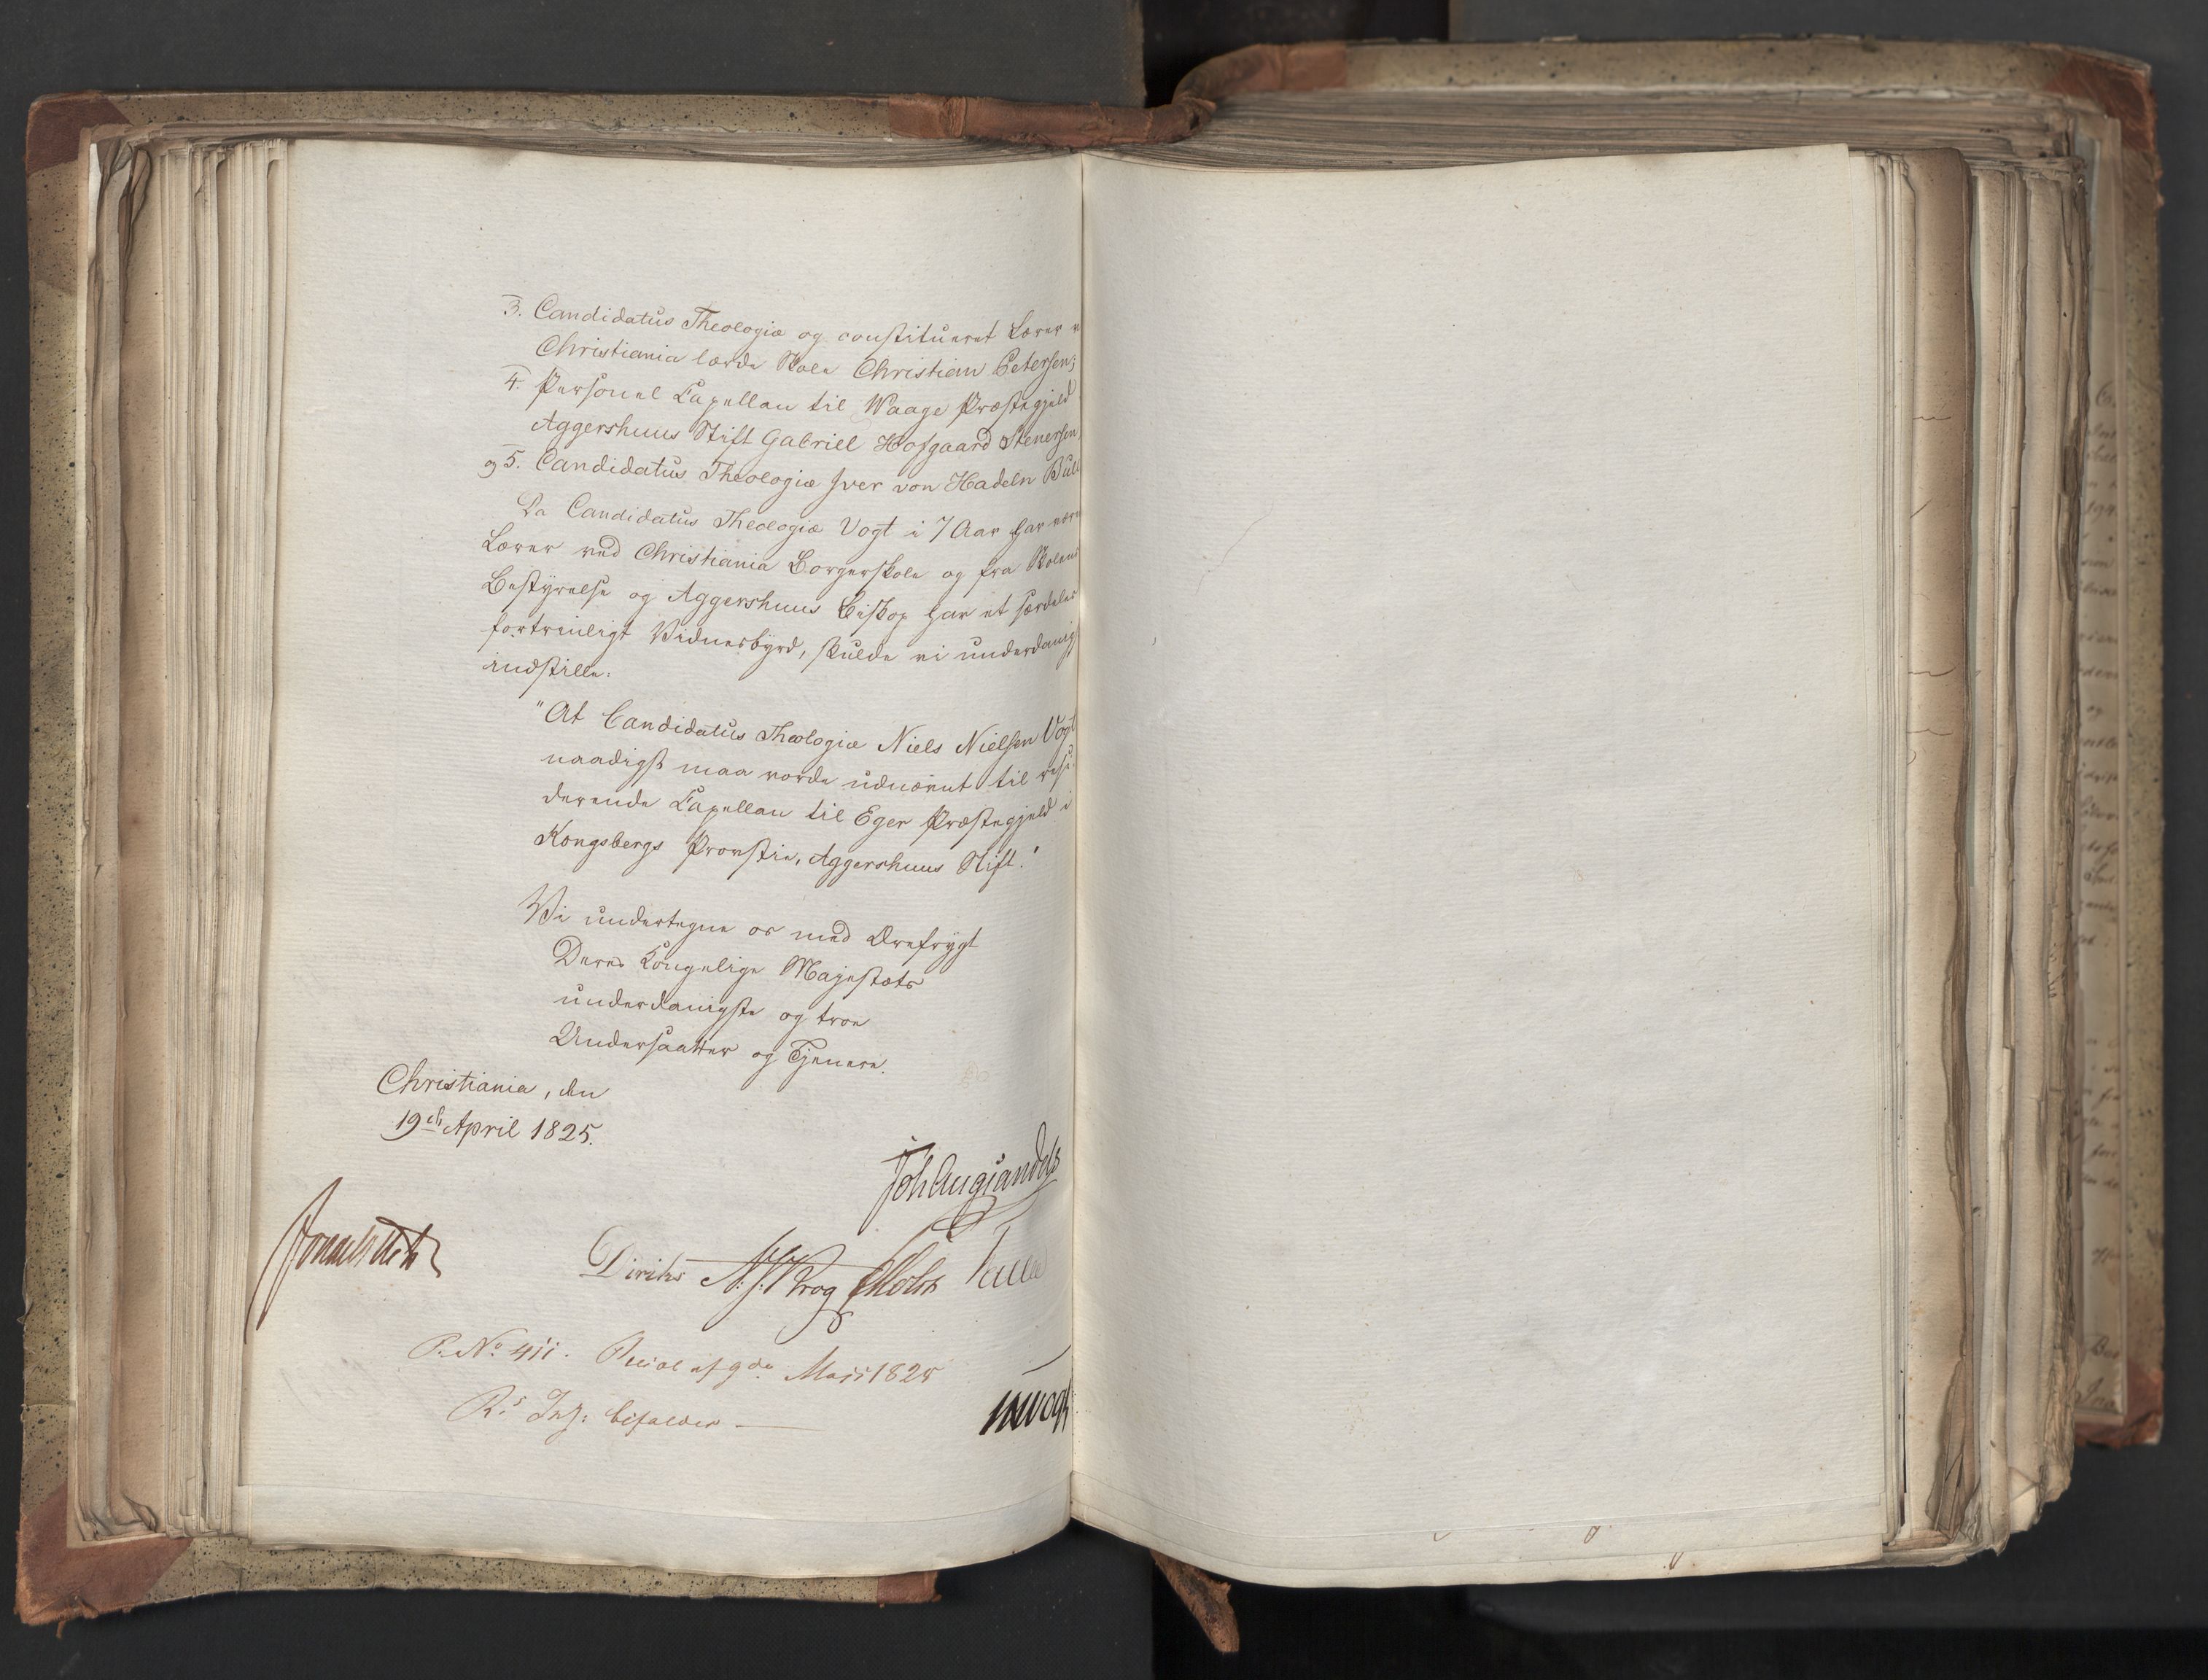 3. Candidatus Theologiæ og constitueret Lærer v
Christiania lærde Skole Christian Petersen;
4. Personel Capellan til Waage Præstegjeld
Aggershuus Stift Gabriel Hofgaard Stenersen
og 5. Candidatus Theologiæ Iver von Hadeln Bull
Da Candidatus Theologiæ Vogt i 7 Aar har være
Lærer ved Christiania Borgerskole og fra Skolens
Bestyrelse og Aggershuus Biskop har et særdeles
fortrinligt Vidnesbyrd, skulde vi underdanigst
indstille:
"At Candidatus Theologiæ Niels Nielsen Vogt
naadigst maa vorde udnævnt til resi-
derende Capellan til Eger Præstegjeld i
Kongsbergs Provstie, Aggershuus Stift."
Vi undertegne os med Ærefrygt
Deres Kongelige Majestæts
underdanigste og troe
Undersaatter og Tjenere.
Christiania, den
19de April 1825.
Joh Aug Sandels
Jonas Collett
Diriks N. J. Krog P Motzfeldt
P. No 411. Resol. af 9de Maii 1825
Rs Inst: bifaldes